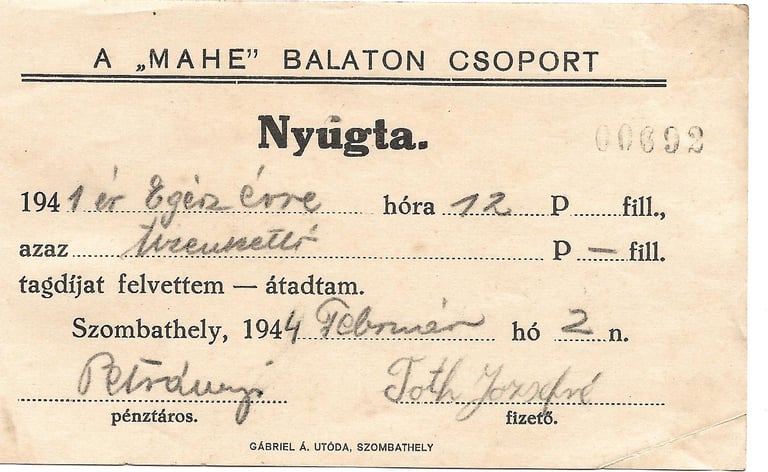 A „MAHE” BALATON CSOPORT
Nyugta.
00692
1941 év Egész évre hóra 12 P fill.,
azaz tizenkettő P — fill.
tagdíjat felvettem — átadtam.
Szombathely, 1944 Február hó 2 n.
Petrányi Tóth Józsefné
pénztáros. fizető.
GÁBRIEL Á. UTÓDA, SZOMBATHELY